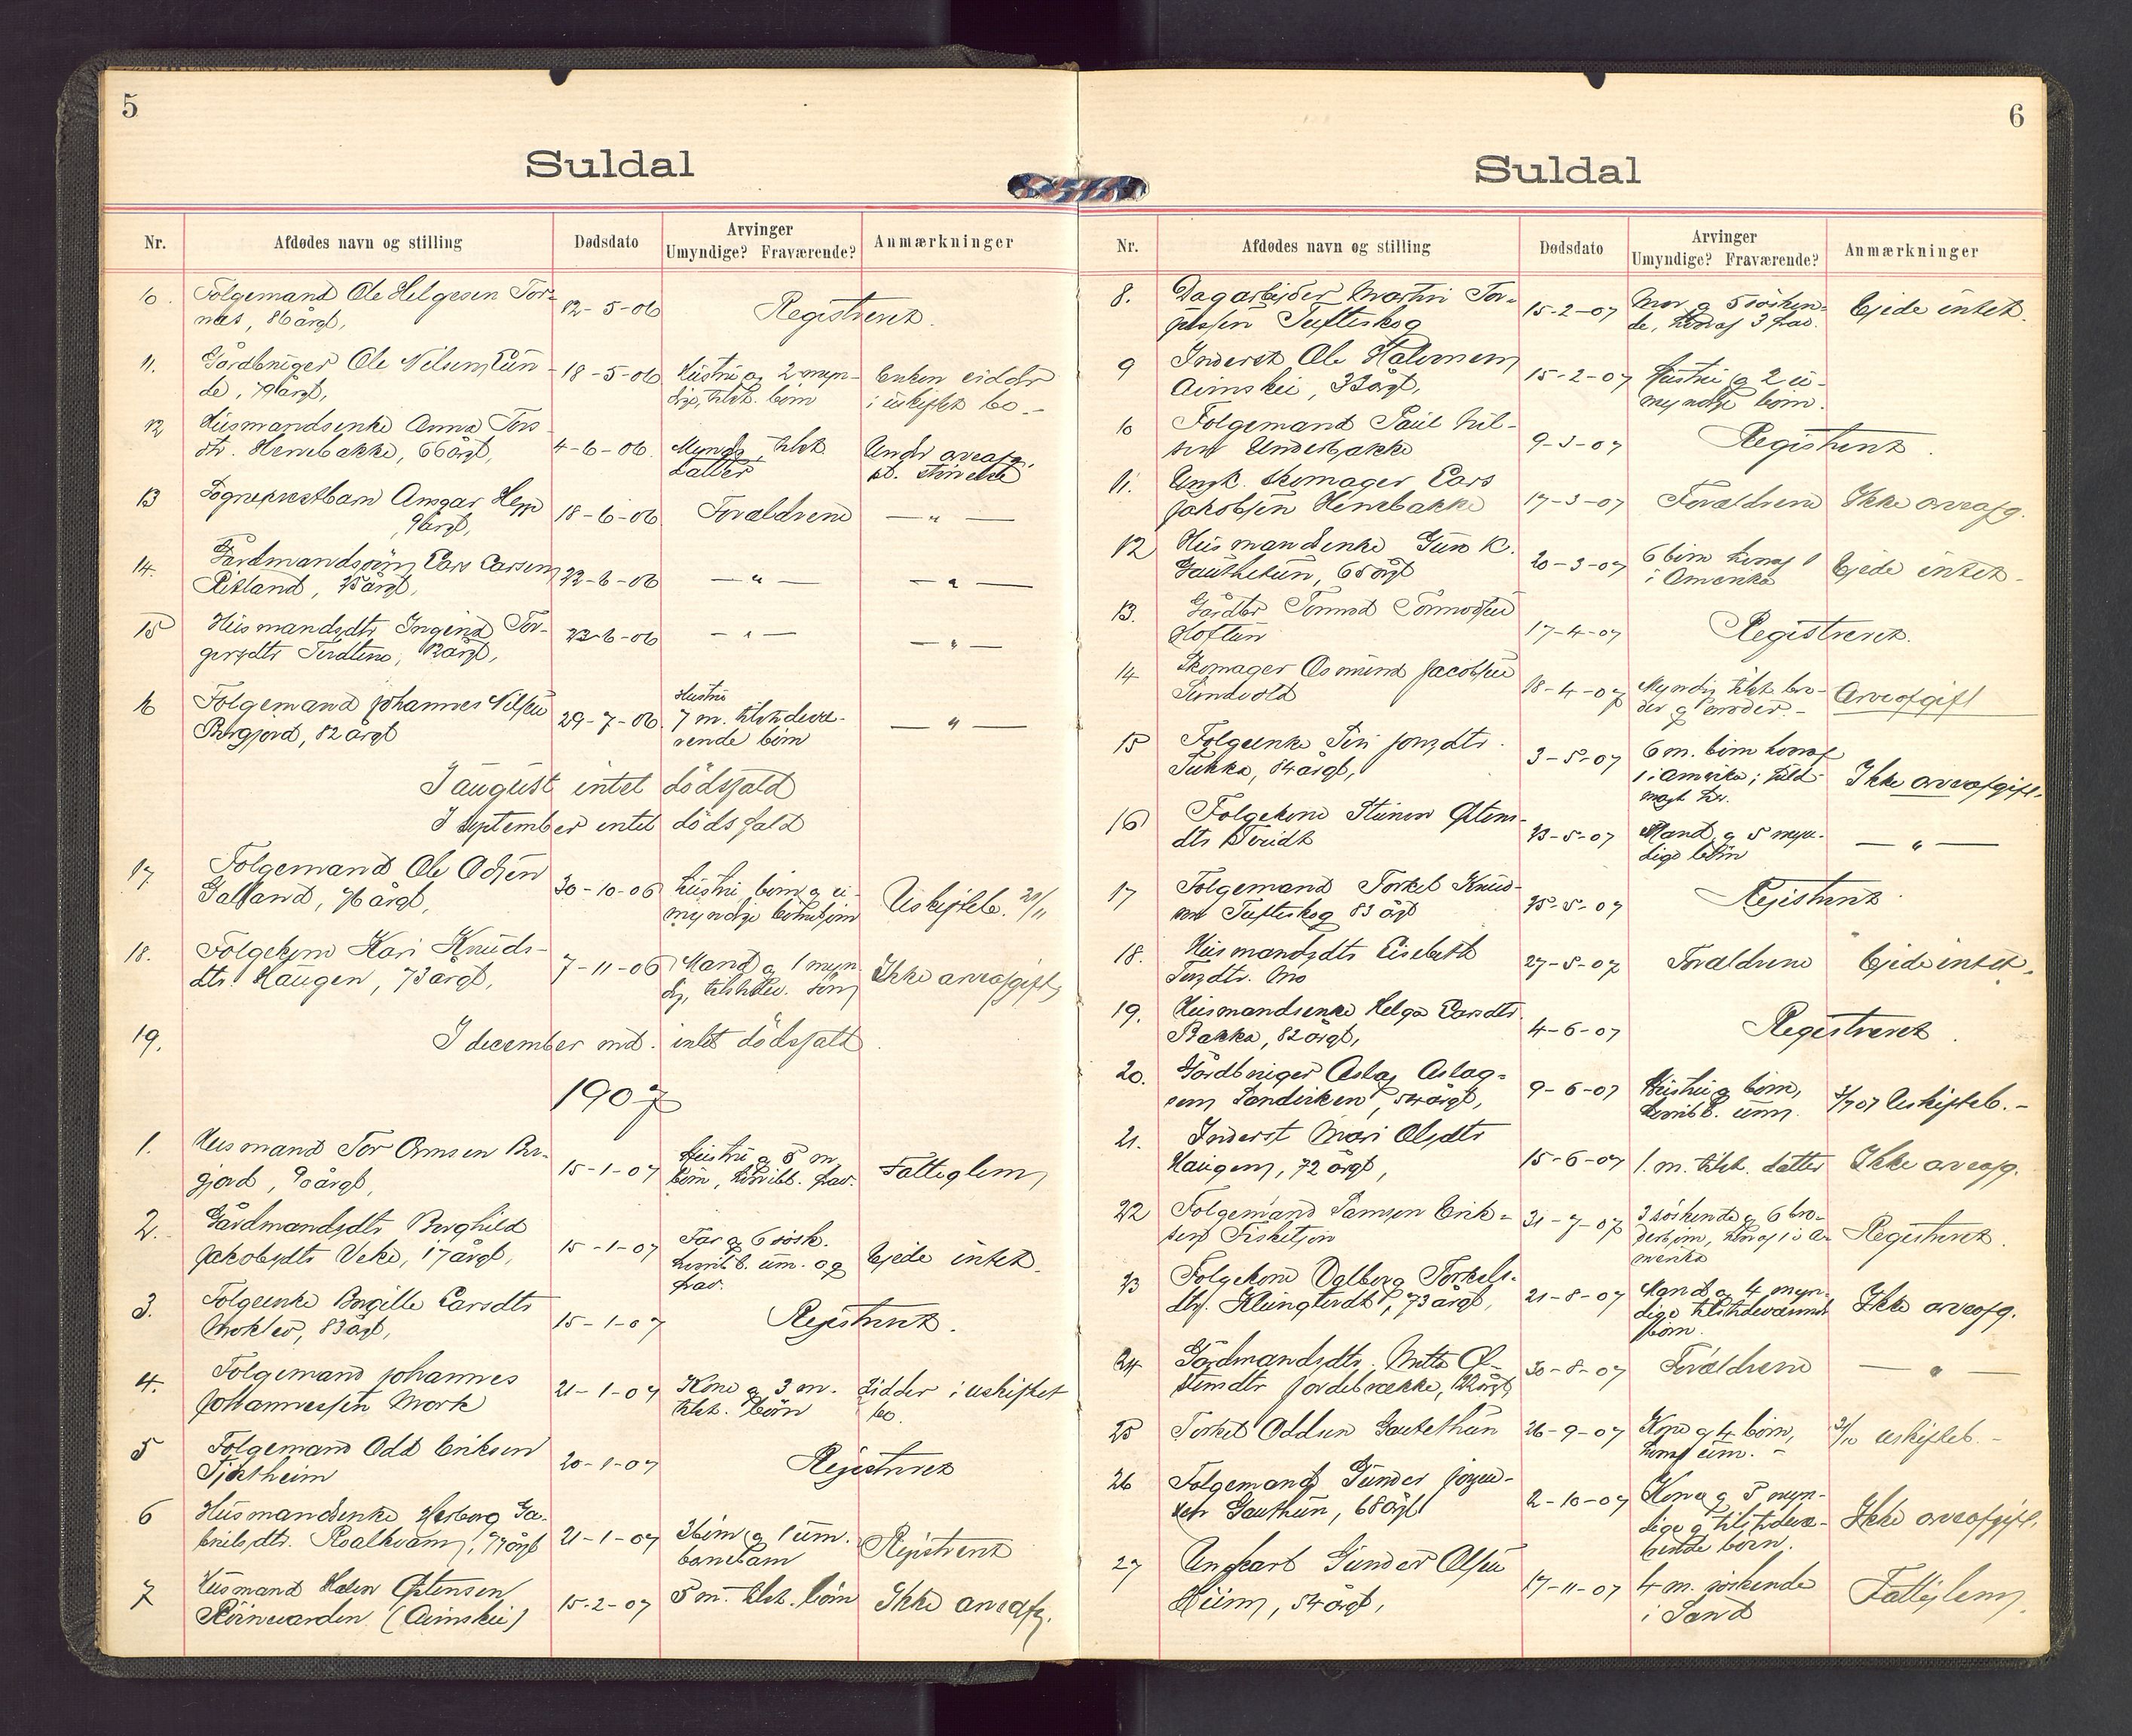 5
Suldal
Nr.
Afdødes navn og stilling
Dødsdato
Arvinger
Umyndige? Fraværende?
Anmærkninger
10. Folgemand Ole Helgesen Tor-
nes, 86 årgl, 12-5-06 Registreret.
11. Gårdbruger Ole Nilsen
de, 79 årgl, 18-5-06 Hustru og 2 myn-
dige, tilst. børn Enken sidder
i uskiftet bo.-
12 Husmandsenke Anna Tors
dtr. Herrebakke, 66 årgl, 4-6-06. Myndig, tilst.
datter Under arveafg.
størrelse
13 Sogneprestbarn Ansgar Hepp
9 årgl, 18-6-06 Forældrene — " —
14. Gårdmandssøn Lars Larsen
Ritland, 25 årgl, 22-6-06 — " — — " —
15 Husmandsdtr Ingerid Tor-
gersdtr 12 årgl, 23-6-06 — " — — " —
16 Folgemand Johannes Nilsen
Bergjord, 82 årgl 29-7-06 Hustru
7 m. tilstedevæ-
rende børn — " —
I august intet dødsfald
I september intet dødsfald
17. Folgemand Ole Odsen
Galland, 76 årgl, 30-10-06 hustru, børn og u-
myndige Uskifteb. 20/11
18. Folgekone Kari Knuds-
dtr. Haugen, 73 årgl, 7-11-06 Mand og 1 myn
dig, søn Ikke arveafgift
19. I december md. intet dødsfald.
1907
1. Husmand Tor Ormsen Ber-
gjord, 90 årgl, 15-1-07 Hustru og 5 m.
børn, hvoribl. frav. Fattiglem
2. Gårdmandsdtr Borghild
Jakobsdtr Veke, 17 årgl, 15-1-07 Far og 6 søsk.
hvoribl. um. og
frav. Ejede intet.
3. Folgeenke Borgille Larsdtr
83 årgl, 15-1-07 Registreret.
4. Folgemand Johannes
Johannessen Mork 21-1-07 Kone og 3 m.
tilst. børn Sidder i uskiftet
bo.
5 Folgemand Odd Eriksen
20-1-07 Registreret
6 Husmandsenke Herborg Ga-
brielsdtr. Roalkvam, 77 årgl 21-1-07 3 børn og 1 um.
barnebarn Registreret
7 Husmand Østensen
(Aarnskei) 15-2-07 5 m. tilst. børn Ikke arveafg.
6
Suldal
Nr.
Afdødes navn og stilling
Dødsdato
Arvinger
Umyndige? Fraværende?
Anmærkninger
8. Dagarbejder Martin Tor-
Tufteskog 15-2-07 Mor og 5 søsken-
de, hvoraf 3 frav. Ejede intet.
9 Inderst Ole Halvorsen
32 årgl, 15-2-07 Hustru og 2 u-
myndige børn.
10 Folgemand Paul Nil-
sen Underbakke 9-3-07 Registreret.
11. Ungk. skomager Lars
Jakobsen Herrebakke 17-3-07 Forældrene Ikke arveafg.
12 Husmandsenke Guro K.
65 årgl 20-3-07 6 børn hvoraf 1
i Amerika Ejede intet-
13. Gårdbr Tormod Tormodsen
Hoftun 17-4-07 Registreret.
14 Skomager Osmund Jacobsen
Sundvold 18-4-07 Myndig tilst. bro-
der og moder.- Arveafgift
15 Folgeenke Siri Jonsdtr.
84 årgl, 3-5-07 6 m. børn hvoraf
1 i Amerika; fuld-
magt her. Ikke arveafgift.
16 Folgekone Steinvor Østens-
dtr 13-5-07 Mand og 5 myn-
dige børn — " —
17 Folgemand Torkel Knud-
sen Tufteskog 83 årgl 25-5-07 Registreret.
18. Husmandsdtr Elisebeth
Mo 27-5-07 Forældrene Ejede intet.
19. Husmandsenke Helga Larsdtr
Bakka, 82 årgl, 4-6-07 Registreret.
20. Gårdbruger Aslag Aslag-
sen 54 årgl, 9-6-07 Hustru og børn,
hvoribl. um. Uskifteb.-
21. Inderst Mari Olsdtr
Haugen, 72 årgl, 15-6-07 1 m. tilst. datter Ikke arveafg.
22 Folgemand Samson Erik-
sen Fisketjøn 31-7-07 3 søskende og 6 bro-
derbørn, hvoraf 1 i A-
merika Registreret.
23 Folgekone Valborg Torkels-
dtr. 73 årgl, 21-8-07 Mand og 4 myn-
dige tilstedeværende
børn. Ikke arveafg.
24 Gårdmandsdtr. Mette Ø-
stensdtr Jordebrække, 12 årgl 30-8-07 Forældrene — " —
25 Torkel Oddsen 26-9-07 Kone og 4 børn,
hvoraf um. - uskifteb.-
26 Folgemand Gunder
68 årgl 2-10-07 Kone og 5 myn-
dige og tilstedevæ-
rende børn. Ikke arveafgift.
27 Ungkarl Gunder Olsen
54 årgl, 17-11-07 4 m. søskende
i Sand Fattiglem.